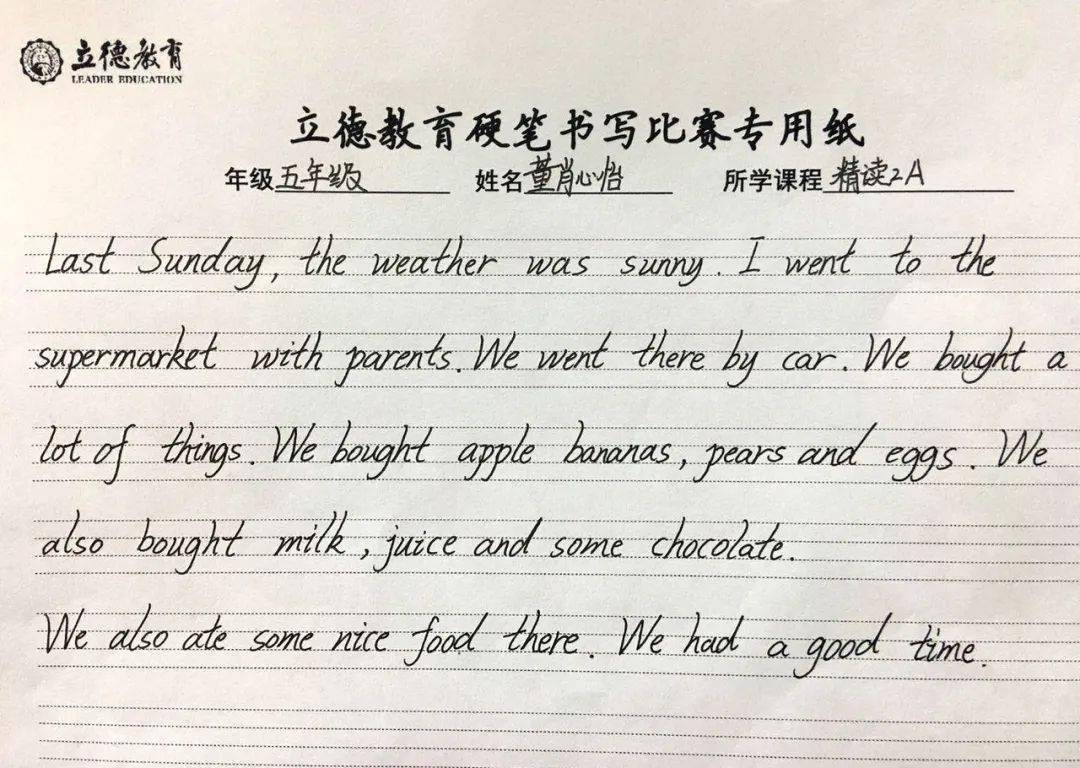 立德教育
LEADER EDUCATION
立德教育硬笔书写比赛专用纸
年级五年级 姓名董肖心怡 所学课程精读2A
Last Sunday, the weather was sunny. I went to the
supermarket with parents. We went there by car. We bought a
lot of things. We bought apple bananas, pears and eggs. We
also bought milk, juice and some chocolate.
We also ate some nice food there. We had a good time.